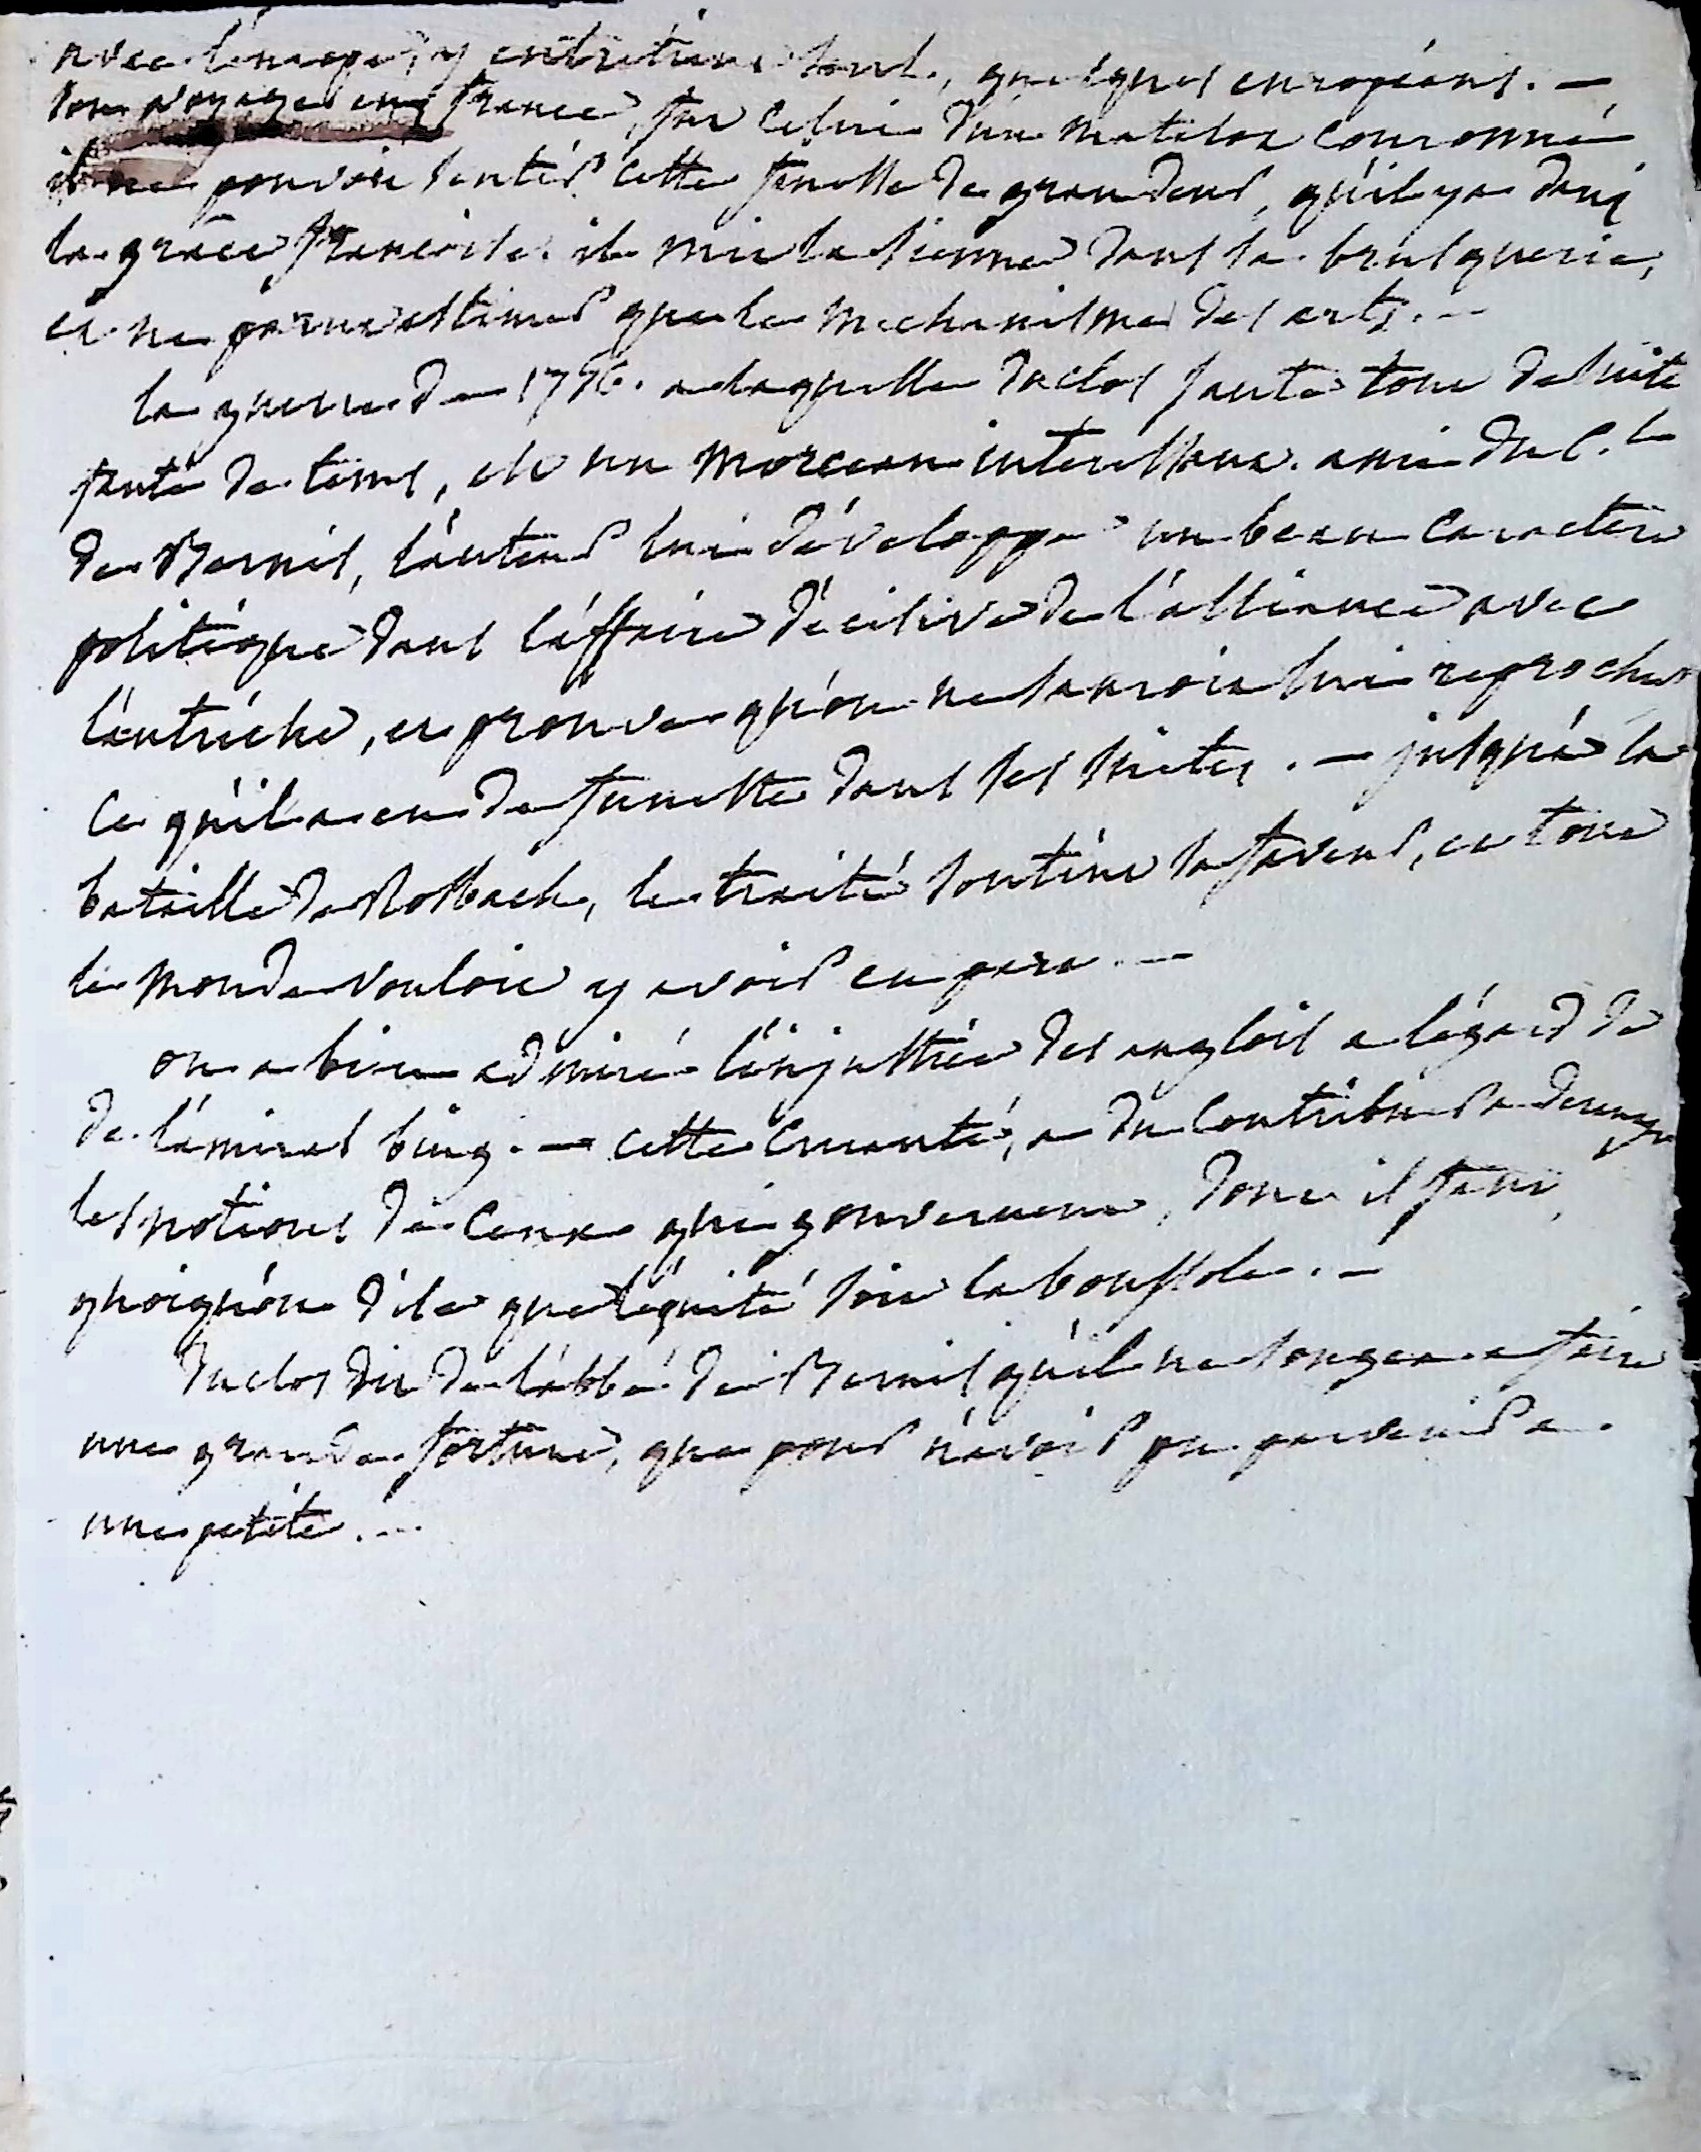 avec l'europe, y entretint seul, quelques européans. —
son voyage en france, fut celui d'un matelot couronné
il ne pouvoit sentir cette sorte de grandeur, qu'il y a dans
la grâce françoise. il mit la sienne dans la brusquerie,
et ne parut estimer que le mechanisme des arts. —
la guerre de 1756. a laquelle duclos saute tout de suite
faute de tems, est un morceau interessant. ami du C.al
de Bernis, l'auteur lui développe un beau caractere
politique dans l'affaire décisive de l'alliance avec
l'autriche, et prouve qu'on ne sauroit lui reprocher
ce qu'il a eu de funeste dans ses suites. — jusqu'à la
bataille de Rosbach, le traité soutint sa faveur, et tout
le monde vouloit y avoir eu part. —
on a bien admiré l'injustice des anglois a l'égard de
de l'amiral bing. — cette cruauté, a du contribuer a deranger
les notions de ceux qui gouvernent, dont il faut,
quoiqu'on dise que l'équité soit la boussole. —
Duclos dit de l'abbé de Bernis qu'il ne songea a faire
une grande fortune, que pour n'avoir pu parvenir a
une petite. —